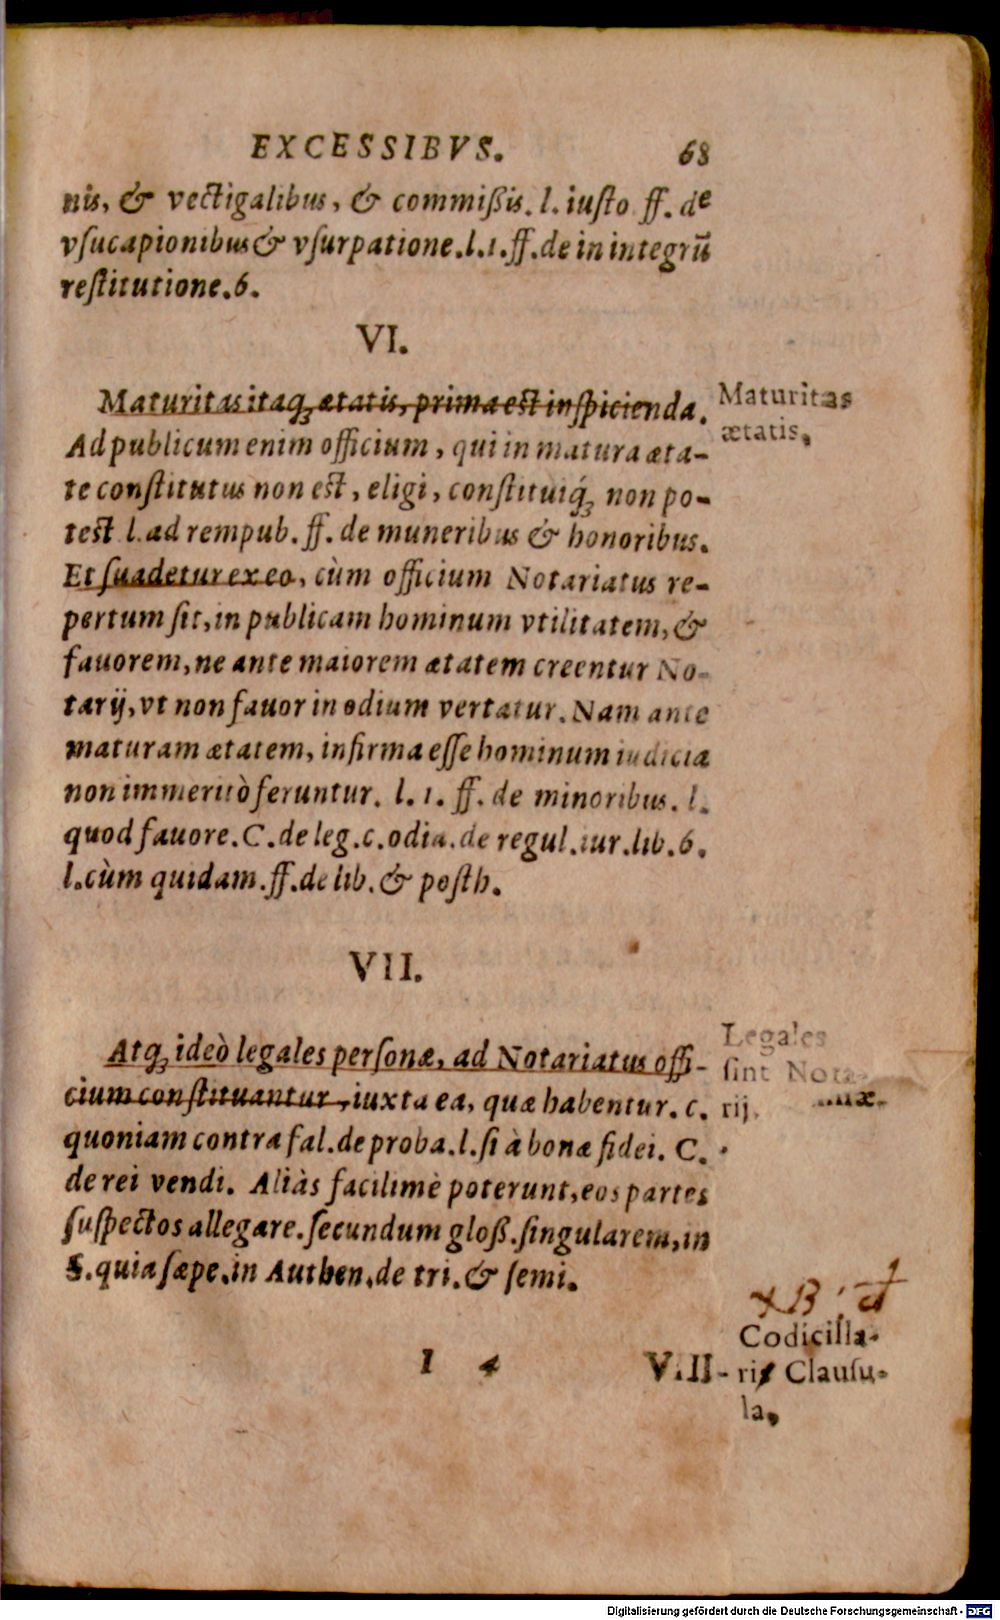 EXCESSIBVS. 68
nis, & vectigalibus, & commißis. l. iusto ff. de
vſucapionibus & vſurpatione. l. 1. ff. de in integrū
reſtitutione. 6.
VI.
Maturitas itaq; ætatis, prima est inſpicienda.
Maturitas
ætatis.
Ad publicum enim officium, qui in matura æta-
te conſtitutus non est, eligi, conſtituiq́; non po-
test l. ad rempub. ff. de muneribus & honoribus.
Et ſuadetur ex eo, cùm officium Notariatus re-
pertum ſit, in publicam hominum vtilitatem, &
fauorem, ne ante maiorem ætatem creentur No-
tarij, vt non fauor in odium vertatur. Nam ante
maturam ætatem, infirma eſſe hominum iudicia
non immeritò feruntur. l. 1. ff. de minoribus. l.
quod fauore. C. de leg. c. odia. de regul. iur. lib. 6.
l. cùm quidam. ff. de lib. & posth.
VII.
Atq; ideò legales perſonæ, ad Notariatus offi-
Legales
ſint Nota-
rij.
cium conſtituantur, iuxta ea, quæ habentur. c.
quoniam contra fal. de proba. l. ſi à bonæ fidei. C.
de rei vendi. Aliàs facilimè poterunt, eos partes
ſuſpectos allegare. ſecundum gloß. ſingularem, in
§. quia ſæpe. in Authen. de tri. & ſemi.
Codicilla-
ris Clauſu-
la.
I 4 VIII-
Digitalisierung gefördert durch die Deutsche Forschungsgemeinschaft - DFG